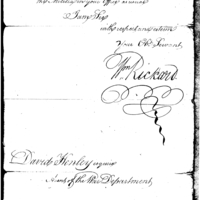 I am, Sir,
with respect and esteem
Your Obt Servant,
Wm Rickard
David Henley esquire
Agent of the War Department,